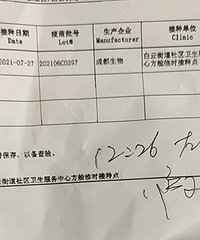 接种日期 疫苗批号 生产企业 接种单位
Date Lot# Manufacturer Clinic
2021-07-27 202106C0297 成都生物 白云街道社区卫生服
心方舱临时接种点
保存，以备查验。
12226 左
云街道社区卫生服务中心方舱临时接种点